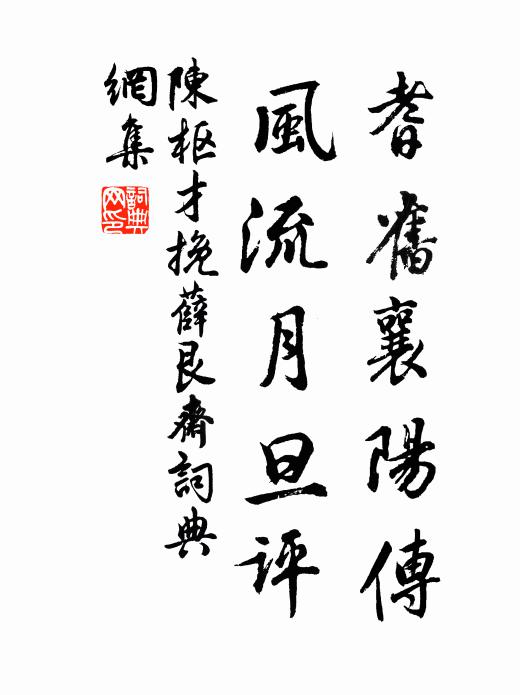 耆舊襄陽傳
風流月旦評
陳枢才挽薛艮齋詞典
網集
詞典
网印